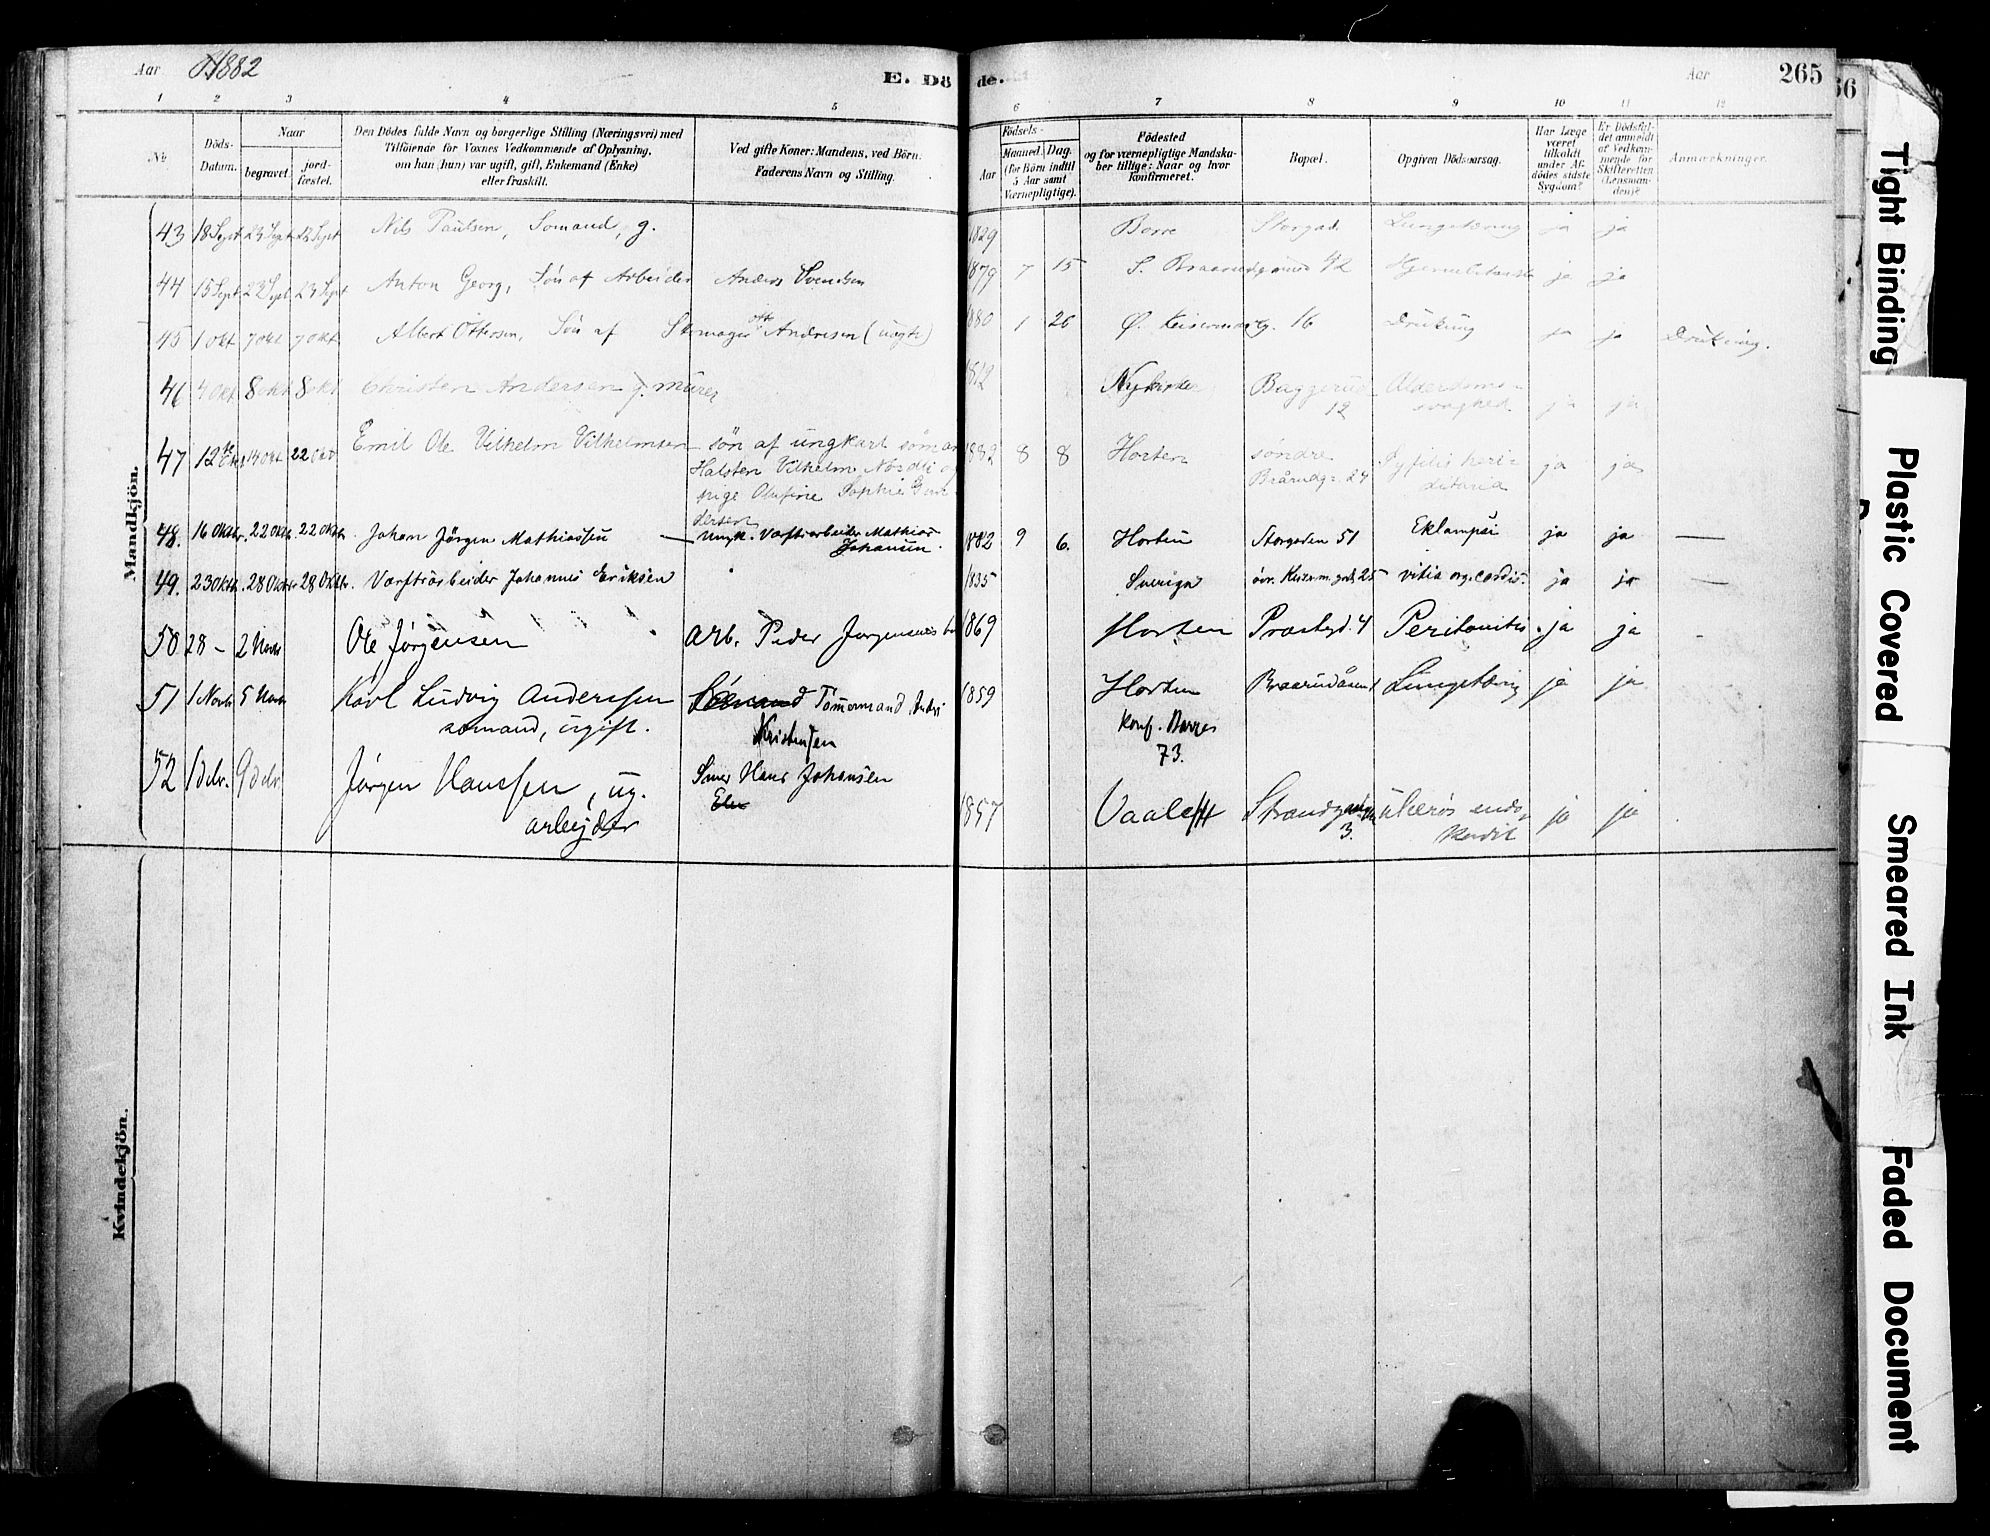 Aar 1882
E. Dö de.
Aar 265
66
1 2 3 4 5 6 7 8 9 10 11 12
No.
Döds-Datum.
Naar
begravet.
jord-fæstet.
Den Dödes fulde Navn og borgerlige Stilling (Næringsvei) med
Tilföiende for Voxnes Vedkommende af Oplysning,
om han (hun) var ugift, gift, Enkemand (Enke)
eller fraskilt.
Ved gifte Koner: Mandens, ved Börn:
Faderens Navn og Stilling.
Födsels-
Aar
Maaned. Dag.
(for Börn indtil
5 Aar samt
Værnepligtige).
Födested
og for værnepligtige Mandska-
ber tillige: Naar og hvor
konfirmeret.
Bopæl.
Opgiven Dödsaarsag.
Har Læge
været
tilkaldt
under Af-
dödes sidste
Sygdom?
Er Dödsfal-
det anmeldt
af Vedkom-
mende for
Skifteretten
(Lensman-
den)?
Anmærkninger.
Mandkjön.
43 18 Sept 23 Sept 23 Sept Nils Paulsen, Sömand, g. 1829 Borre Storgad. Lungetæring ja ja
44 15 Sept 23 Sept 23 Sept Anton Georg, Sön af Arbeider Anders Svendsen 1879 7 15 S. 42 ja ja
45 1 Okt 7 Okt 7 Okt Albert Ottersen, Sön af Skomager Andresen (uægte) 1880 1 26 Ø. 16 Drukning ja ja Drukning.
46 4 Okt 8 Okt 8 Okt Christen Andersen murer 1812 Nykirke Baggerud
12 Alderdoms-
svaghed ja ja
47 12te Okt 14 Okt 22 Okt Emil Ole Vilhelm Vilhelmsen – søn af ungkarl søman
Halsten Vilhelm Nordli og
pige Olufine Sophie Gun-
dersen 1882 8 8 Horten søndre
Brårudg. 24 Syfilis heri-
ditaria ja ja
48. 16 Oktbr. 22 Oktbr. 22 Oktbr. Johan Jörgen Mathiassen – Ungk. Værftsarbeider Mathias
Johansen. 1882 9 6. Horten Storgaden 51 Eklampsi ja ja —
49. 23 Oktb. 28 Oktbr. 28 Oktbr. Værftsarbeider Johannes Eriksen 1835 Sverige öv. 25 vitia org. cordis. ja ja —
50 28 – 2 Novb Ole Jørgensen Arb. Peder Jørgensens 1869 Horten Præstegd. 4 Peritonitis ja ja
51 1 Novb 5 Novb Karl Ludvig Anderssen
sömand, ugift. Sömand Tömmermand
Kristensen 1859 Horten
konf. Borre
73. Lungetæring ja ja
52 1 dcbr. 9 dcbr Jørgen Hanssen, ug.
arbejder Smed Hans Johansen
1857 Vaale
Strandgaden
3. ulcerøs endo-
kardit ja ja
Kvindekjön.
Tight Binding
Plastic Covered
Smeared Ink
Faded Document